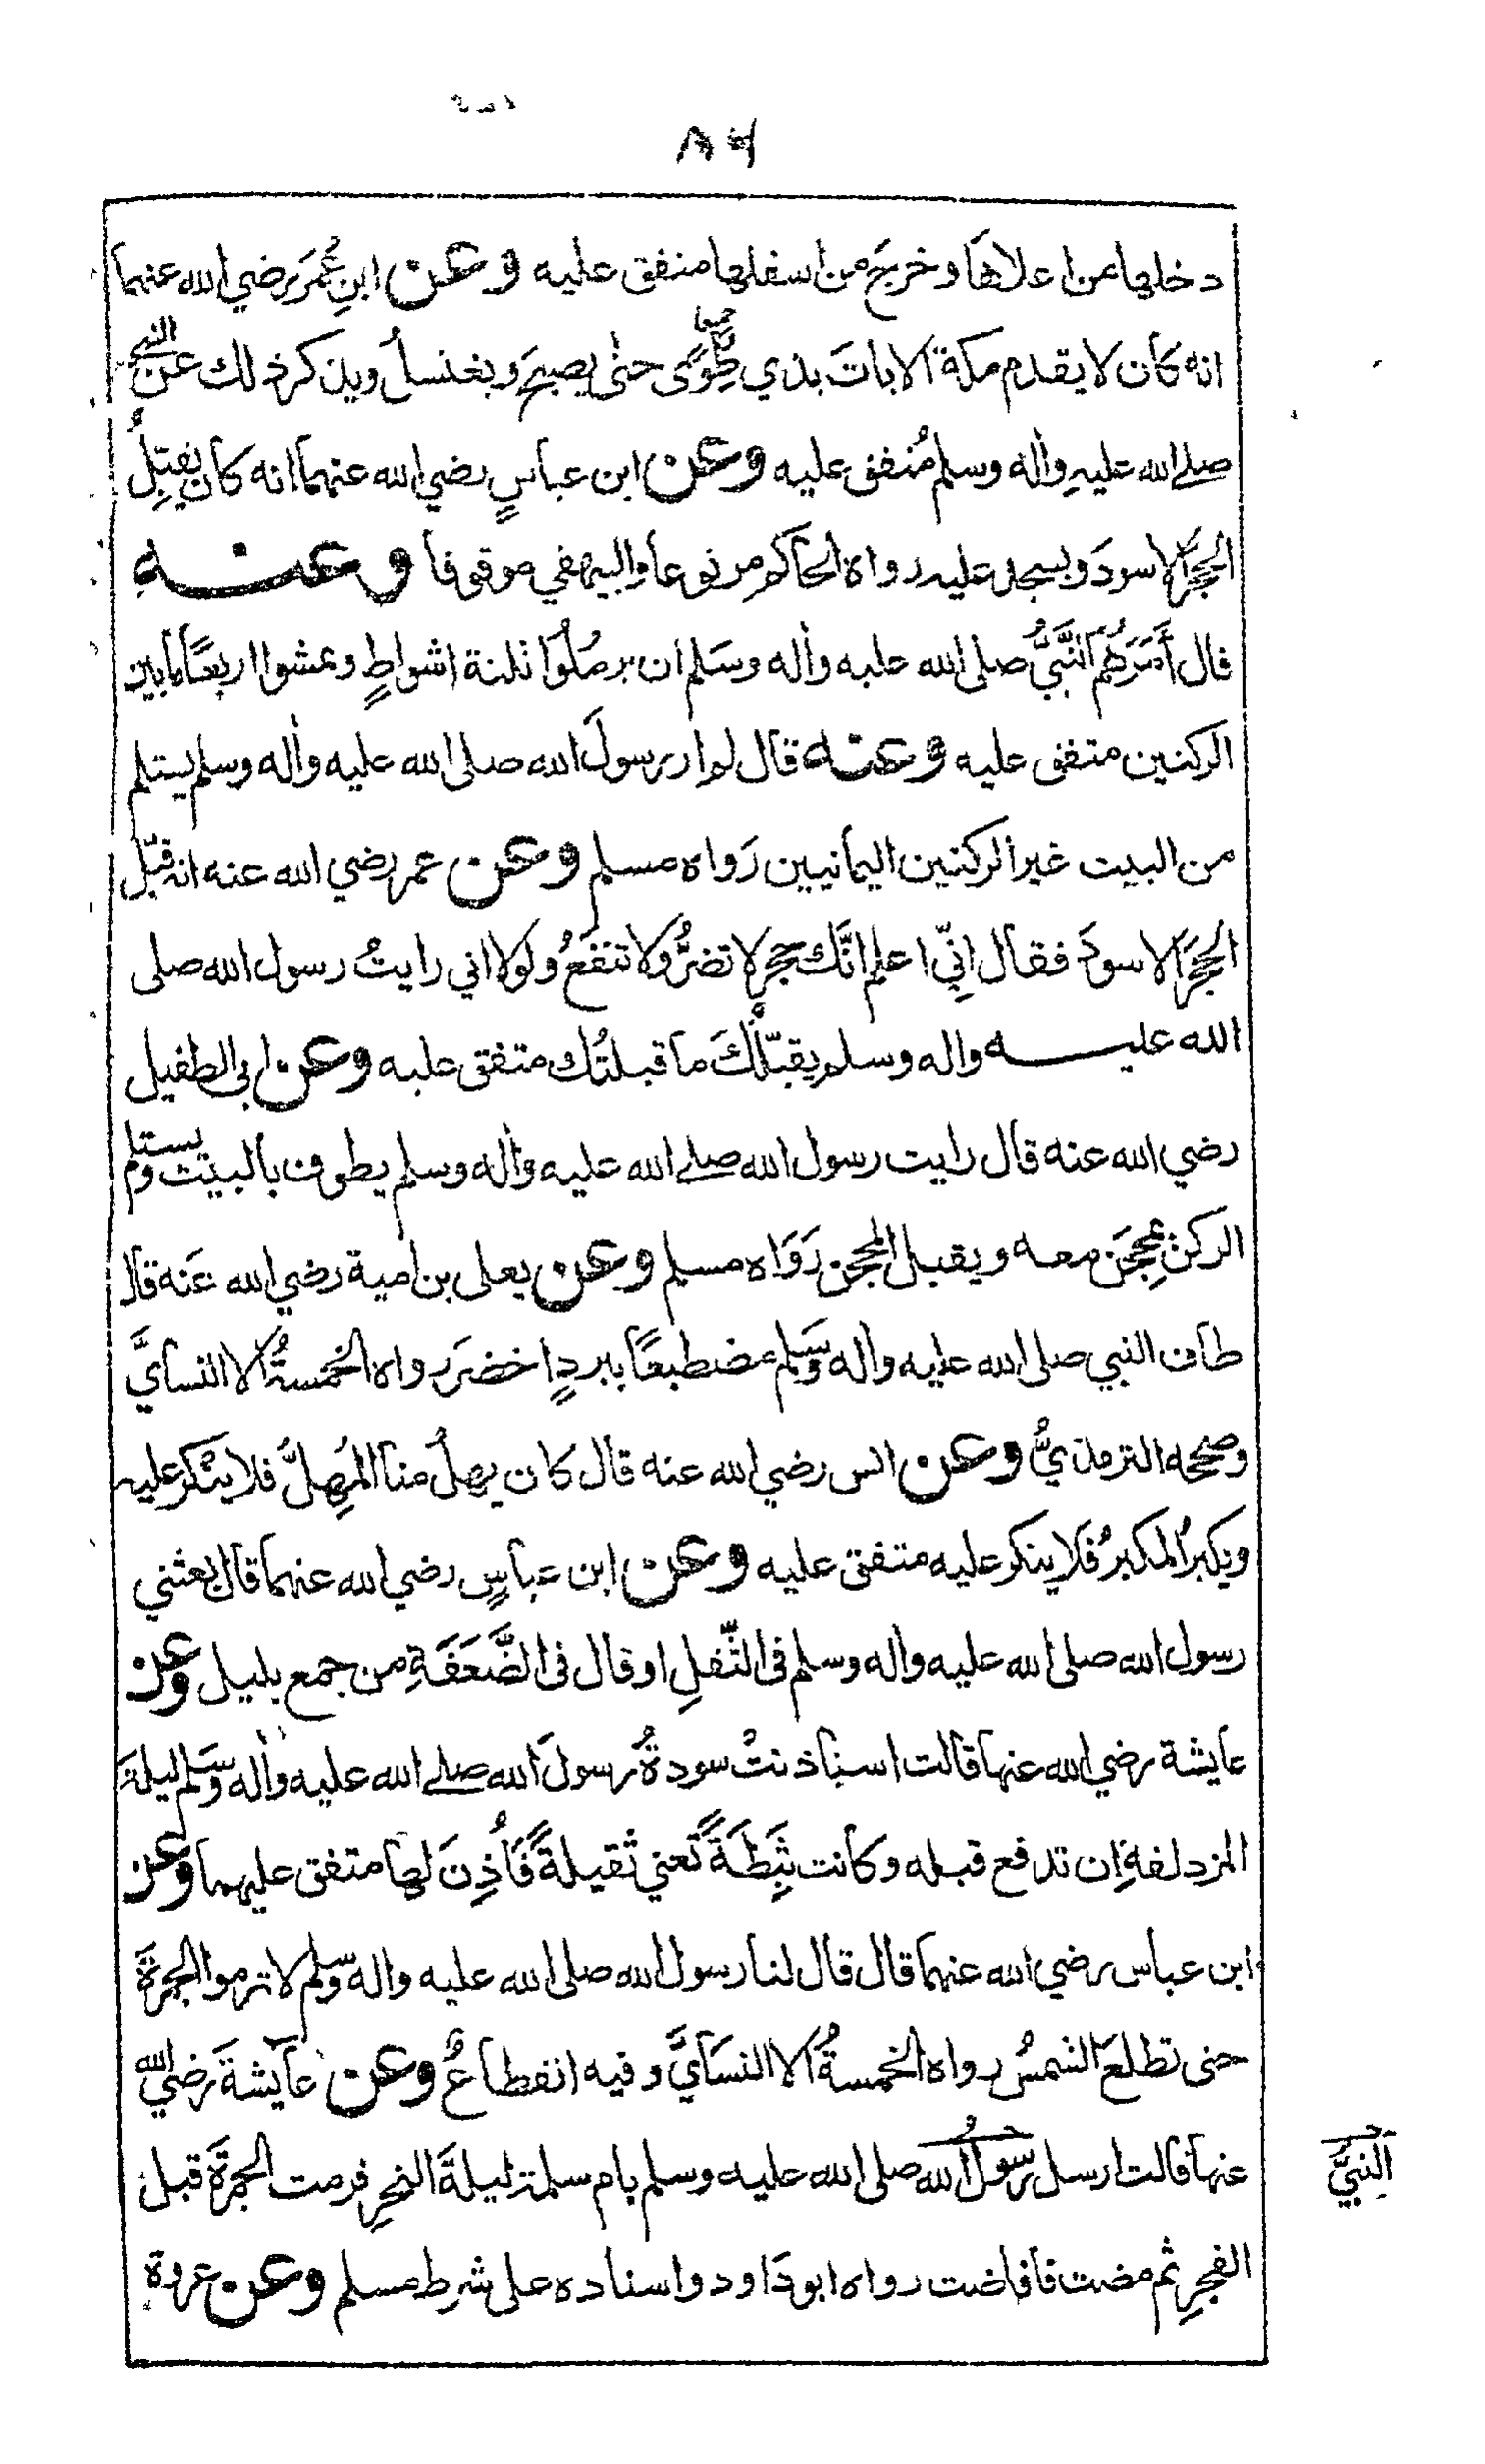 ٨٦
دخلها من اعلاهَا وخرجَ من اسفلها متفق عليه وعن ابنِ عُمَرَ رضي الله عنهما
انه كان لا يقدم مكة الا باتَ بذي طُِوًى جميعا حتٰى يصبحَ ويغتسلُ ويذكر ذلك عن النبي
صلے الله عليهِ واٰله وسلم مُتفق عليه وعن ابن عباسٍ رضي الله عنهما انه كان يقبّلُ
الحجرَ الاسودَ ويسجد عليه رواه الحاكم مرفوعا والبيهقي موقوفا وعنه
قال أمَرَهُم النَّبيُّ صلى الله عليه واٰله وسَلم ان يرمُلُوا ثلثة اشواطٍ ويمشوا اربعًا ما بين
الركنين متفق عليه وعنه قال لم ار رسولَ الله صلى الله عليه واٰله وسلم يستلم
من البيت غير الركنين اليمانيين رَواه مسلم وعن عمر رضي الله عنه انه قبّل
الحجرَ الاسودَ فقال انِّي اعلم انَّك حجر لا تضرُّ ولا تنفعُ ولولا اني رايتُ رسول الله صلى
الله عليه واله وسلم يقبّلُكَ ما قبلتُك متفق عليه وعن ابى الطفيل
رضي الله عنه قال رايت رسول الله صلے الله عليه واٰله وسلم يطوف بالبيت ويستلم
الركنَ بمِحجَن معه ويقبل المحجن رَوَاه مسلم وعن يعلى بن امية رضي الله عَنه قال
طاف النبي صلى الله عليه واٰله وَسَلم مضطبعًا ببردٍ اخضرَ رواه الخمسةُ الا النسآيَّ
وصححه الترمذيُّ وعن انس رضي الله عنه قال كان يهلُ منا المُهِلُّ فلا ينْكر عليه
ويكبرُ المكبرُ فَلا ينكر عليه متفق عليه وعن ابن عباسٍ رضي الله عنهما قال بعثني
رسول الله صلى الله عليه واٰله وسلم فى الثّقلِ او قال فى الضَّعَفَةِ من جمع بليل وعن
عايشة رضي الله عنها قالت استاذنتْ سودةُ رسولَ الله صلے الله عليه واٰله وَسَلم ليلةَ
المزدلفةِ ان تدفع قبله وكانت ثَبِطَةً تعني ثقيلةً فَأَذِنَ لها متفق عليهما وعن
ابن عباس رضي الله عنهما قال قال لنا رسول الله صلى الله عليه واله وسلم لا ترموا الجمرةَ
حتى تطلعَ الشمسُ رواه الخمسةُ الا النسَآيَّ وفيه انقطاعٌ وعن عآيشةَ رَضي الله
عنها قالت ارسل رَسُولُ الله صلى الله عليه وسلم بام سلمة ليلةَ النحرِ فرمت الجمرةَ قبل
النبيُّ
الفجرِ ثم مضت فافاضت رواه ابو دَاود واسناده على شرط مسلم وعن عروة